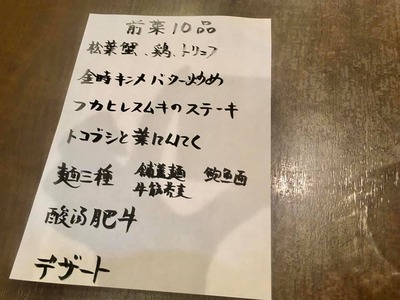 前菜10品
松葉蟹、鶏、トリュフ
金時キンメバター炒め
フカヒレスムキのステーキ
トコブシと葉にんにく
麺三種 鋪蓋麺 鮑魚面
牛筋蕎麦
酸湯肥牛
デザート